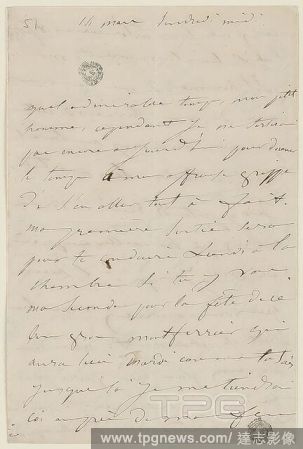 51
14 mars vendredi midi
quel admirable temps, mon petit
homme, cependant je ne sortirai
pas encore aujourd'hui pour donner
le temps à mon affreuse grippe
de s'en aller tout à fait.
ma première sortie sera
pour te conduire lundi à la
chambre si tu y vas
ma seconde pour la fête de ce
bon gros montferrier qui
aura lieu mardi comme tu sais
jusque là je me tiendrai
coi auprès de mon feu
TPG
www.tpgnews.com/達志影像